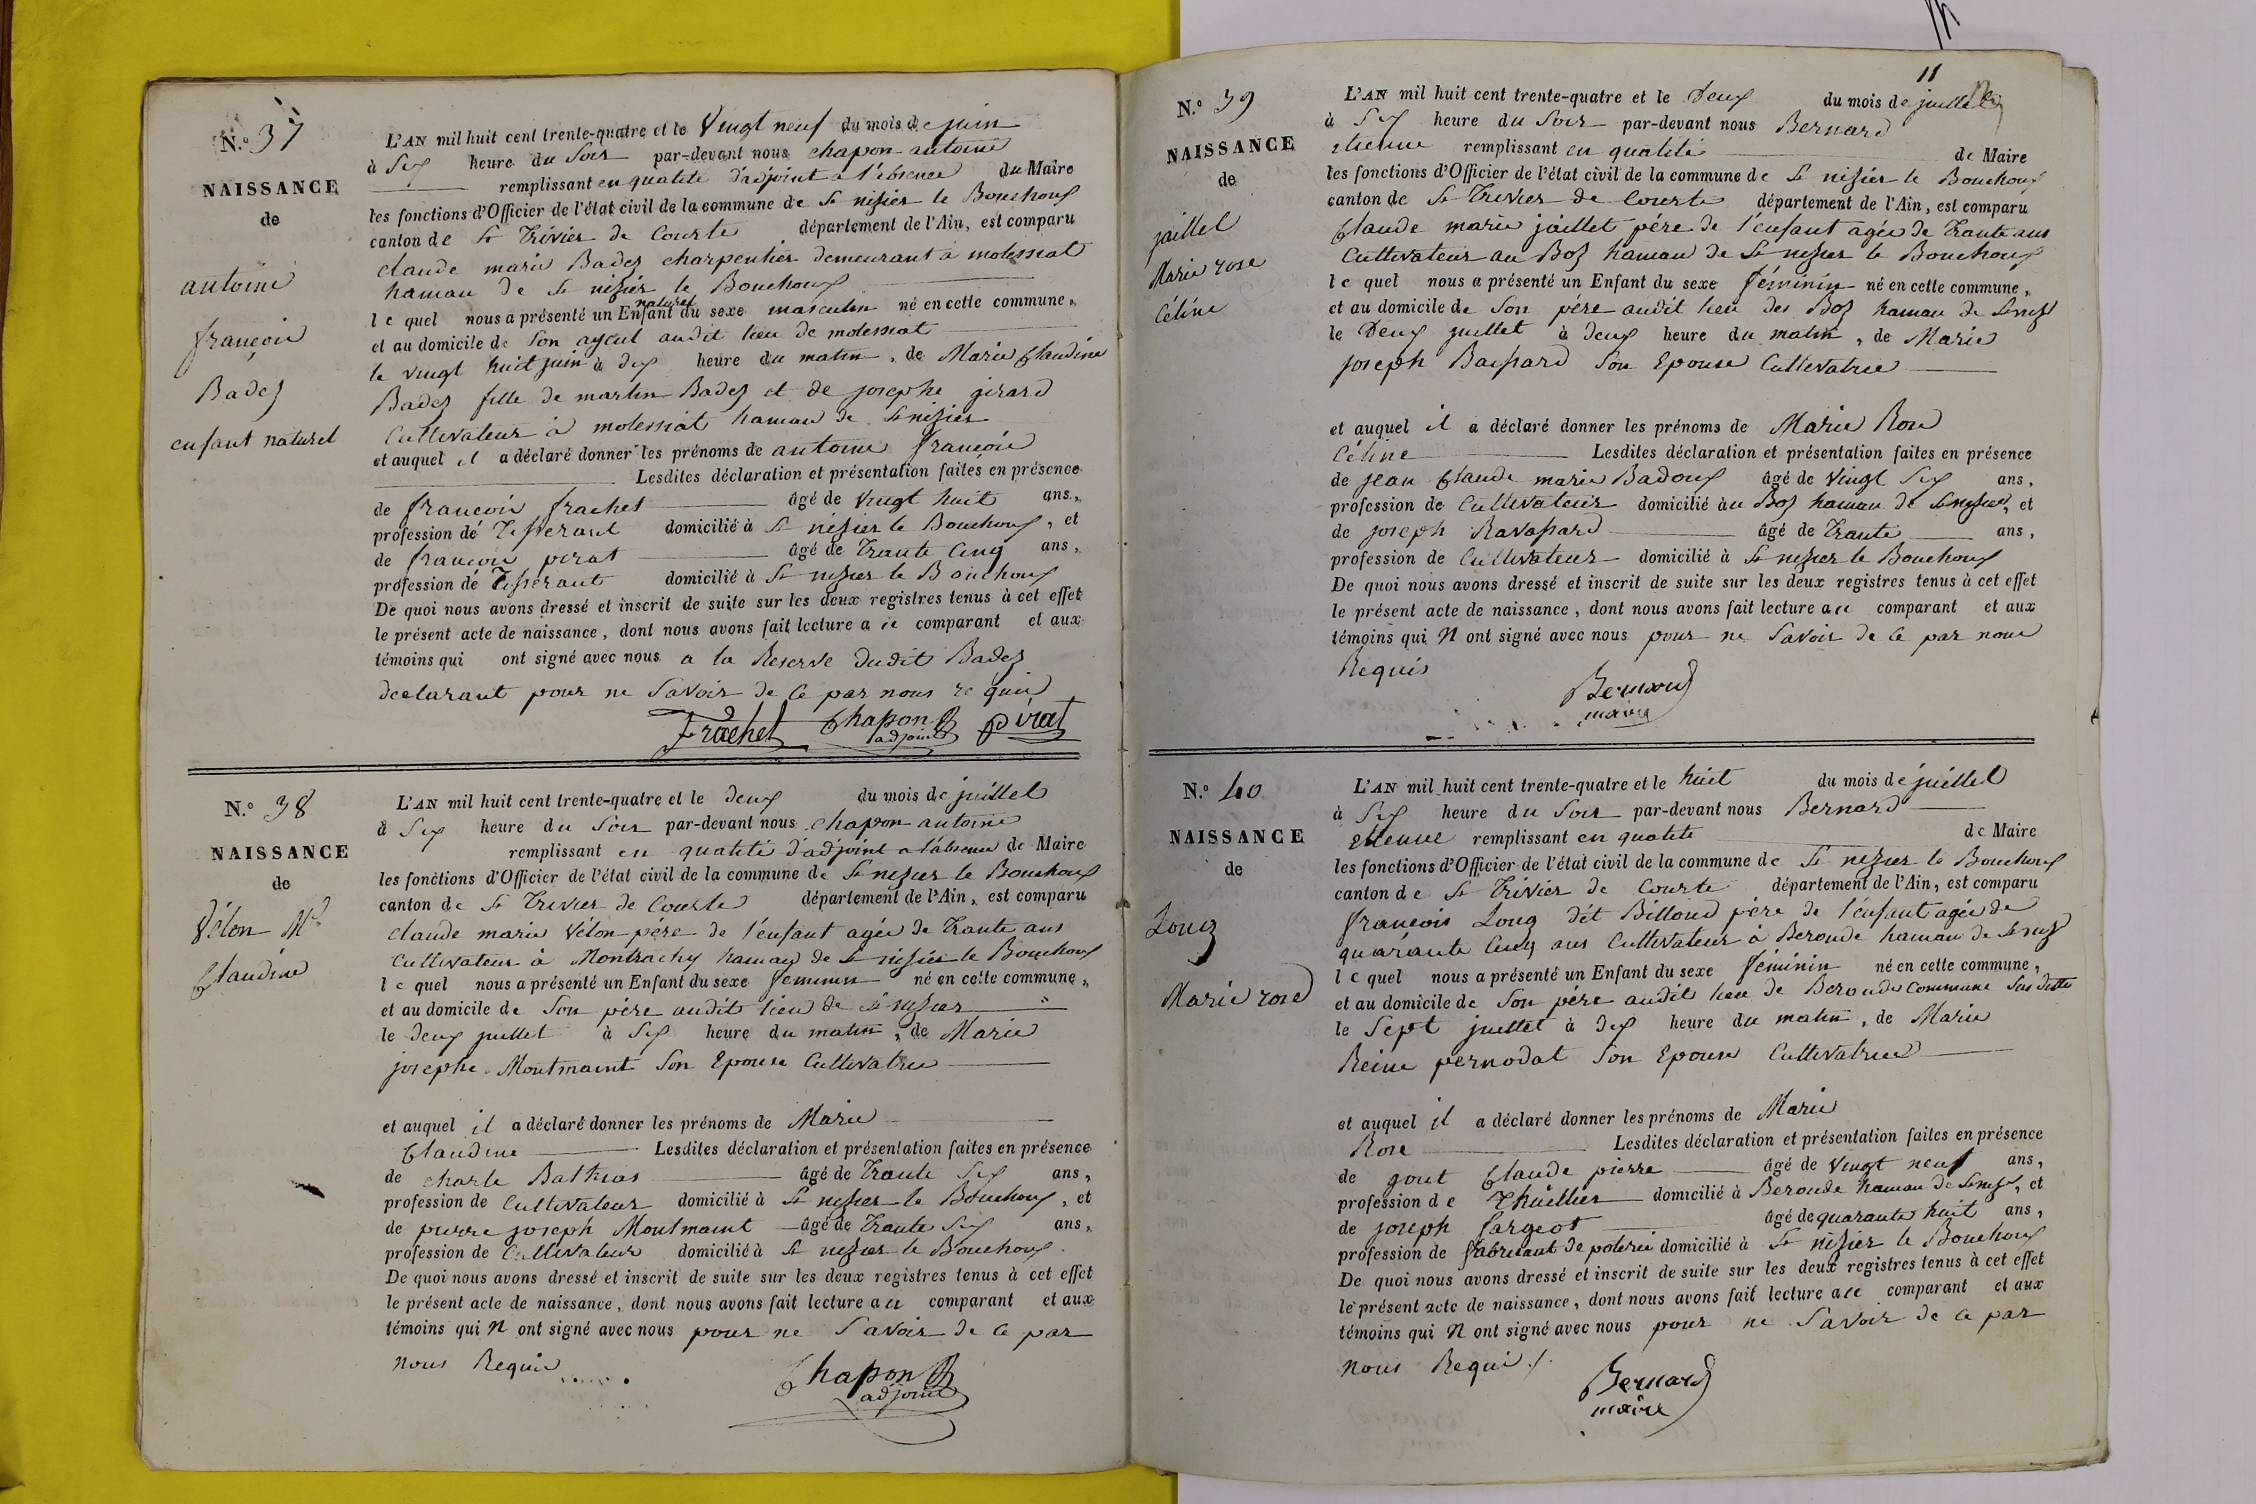 N.º 37
NAISSANCE
de
antoine
françois
Badez
enfant naturel
L'AN mil huit cent trente-quatre et le Vingt neuf du mois de juin
à Six heure du Soir par-devant nous chapon antoine
remplissant en qualité d'adjoint a l'absence du Maire
les fonctions d'Officier de l'état civil de la commune de St nizier le Bouchoux
canton de St Trivier de Courte département de l'Ain, est comparu
claude marie Badez charpentier demeurant à molessiat
hamau de St nizier le Bouchoux
le quel nous a présenté un Enfant naturel du sexe masculin né en cette commune,
et au domicile de Son ayeul audit lieu de molessiat
le vingt huit juin à dix heure du matin, de Marie Claudine
Badez fille de martin Badez et de josephe girard
Cultivateur à molessiat hamau de St nizier
et auquel il a déclaré donner les prénoms de antoine françois
Lesdites déclaration et présentation faites en présence
de françois frachet âgé de Vingt huit ans,
profession de Tisserant domicilié à St nizier le Bouchoux, et
de françois pirat âgé de Trante Cinq ans,
profession de Tisserant domicilié à St nizier le Bouchoux
De quoi nous avons dressé et inscrit de suite sur les deux registres tenus à cet effet
le présent acte de naissance, dont nous avons fait lecture a ce comparant et aux
témoins qui ont signé avec nous a la Reserve dudit Badez
declarant pour ne Savoir de Ce par nous requis
Frachet Chapon adjoint Pirat
N.º 38
NAISSANCE
de
Vélon Mie
Claudine
L'AN mil huit cent trente-quatre et le deux du mois de juillet
à Six heure du Soir par-devant nous chapon antoine
remplissant en qualité d'adjoint a l'absence de Maire
les fonctions d'Officier de l'état civil de la commune de St nizier le Bouchoux
canton de St Trivier de Courte département de l'Ain, est comparu
claude marie Vélon père de l'énfant agée de Trante ans
Cultivateur à Montrachy hamau de St nizier le Bouchoux
le quel nous a présenté un Enfant du sexe feminin né en cette commune,
et au domicile de Son père audit lieu de St nizier
le deux juillet à Six heure du matin, de Marie
josephe Montmaint Son Epouse Cultivatrice
et auquel il a déclaré donner les prénoms de Marie
Claudine Lesdites déclaration et présentation faites en présence
de charle Bathias âgé de Trante Six ans,
profession de Cultivateur domicilié à St nizier le Bouchoux, et
de pierre joseph Montmaint âgé de Trante Six ans,
profession de Cultivateur domicilié à St nizier le Bouchoux.
De quoi nous avons dressé et inscrit de suite sur les deux registres tenus à cet effet
le présent acte de naissance, dont nous avons fait lecture a ce comparant et aux
témoins qui N ont signé avec nous pour ne Savoir de Ce par
nous Requis
Chapon adjoint
11
N.º 39
NAISSANCE
de
jaillet
Marie rose
Céline
L'AN mil huit cent trente-quatre et le Deux du mois de juillet
à Six heure du Soir par-devant nous Bernard
etienne remplissant en qualité de Maire
les fonctions d'Officier de l'état civil de la commune de St nizier le Bouchoux
canton de St Trivier de Courte département de l'Ain, est comparu
Claude marie jaillet père de l'énfant agée de Trante ans
Cultivateur au Boz hamau de St nizier le Bouchoux
le quel nous a présenté un Enfant du sexe féminin né en cette commune,
et au domicile de Son père audit lieu des Boz hamau de St niz
le Deux juillet à deux heure du matin, de Marie
joseph Bassard Son Epouse Cultivatrice
et auquel il a déclaré donner les prénoms de Marie Rose
Céline Lesdites déclaration et présentation faites en présence
de jean Claude marie Badoux âgé de Vingt Six ans,
profession de Cultivateur domicilié au Boz hamau de St nizier, et
de joseph Ravassard âgé de Trante ans,
profession de Cultivateur domicilié à St nizier le Bouchoux
De quoi nous avons dressé et inscrit de suite sur les deux registres tenus à cet effet
le présent acte de naissance, dont nous avons fait lecture a ce comparant et aux
témoins qui N ont signé avec nous pour ne Savoir de Ce par nous
Requis
Bernard
maire
N.º 40
NAISSANCE
de
Longz
Marie rose
L'AN mil huit cent trente-quatre et le huit du mois de juillet
à Six heure du Soir par-devant nous Bernard
etienne remplissant en qualité de Maire
les fonctions d'Officier de l'état civil de la commune de St nizier le Bouchoux
canton de St Trivier de Courte département de l'Ain, est comparu
françois Long dit Billoud père de l'énfant agée de
quarante Cinq ans Cultivateur à Beronde hamau de St niz
le quel nous a présenté un Enfant du sexe féminin né en cette commune,
et au domicile de Son père audit lieu de Beronde commune Sus ditte
le Sept juillet à dix heure du matin, de Marie
Reine pernodat Son Epouse Cultivatrice
et auquel il a déclaré donner les prénoms de Marie
Rose Lesdites déclaration et présentation faites en présence
de gout Claude pierre âgé de Vingt neuf ans,
profession de Thuillier domicilié à Beronde hamau de St niz, et
de joseph fargeot âgé de quarante huit ans,
profession de fabricant de poterie domicilié à St nizier le Bouchoux
De quoi nous avons dressé et inscrit de suite sur les deux registres tenus à cet effet
le présent acte de naissance, dont nous avons fait lecture a ce comparant et aux
témoins qui N ont signé avec nous pour ne Savoir de Ce par
nous Requi
Bernard
maire